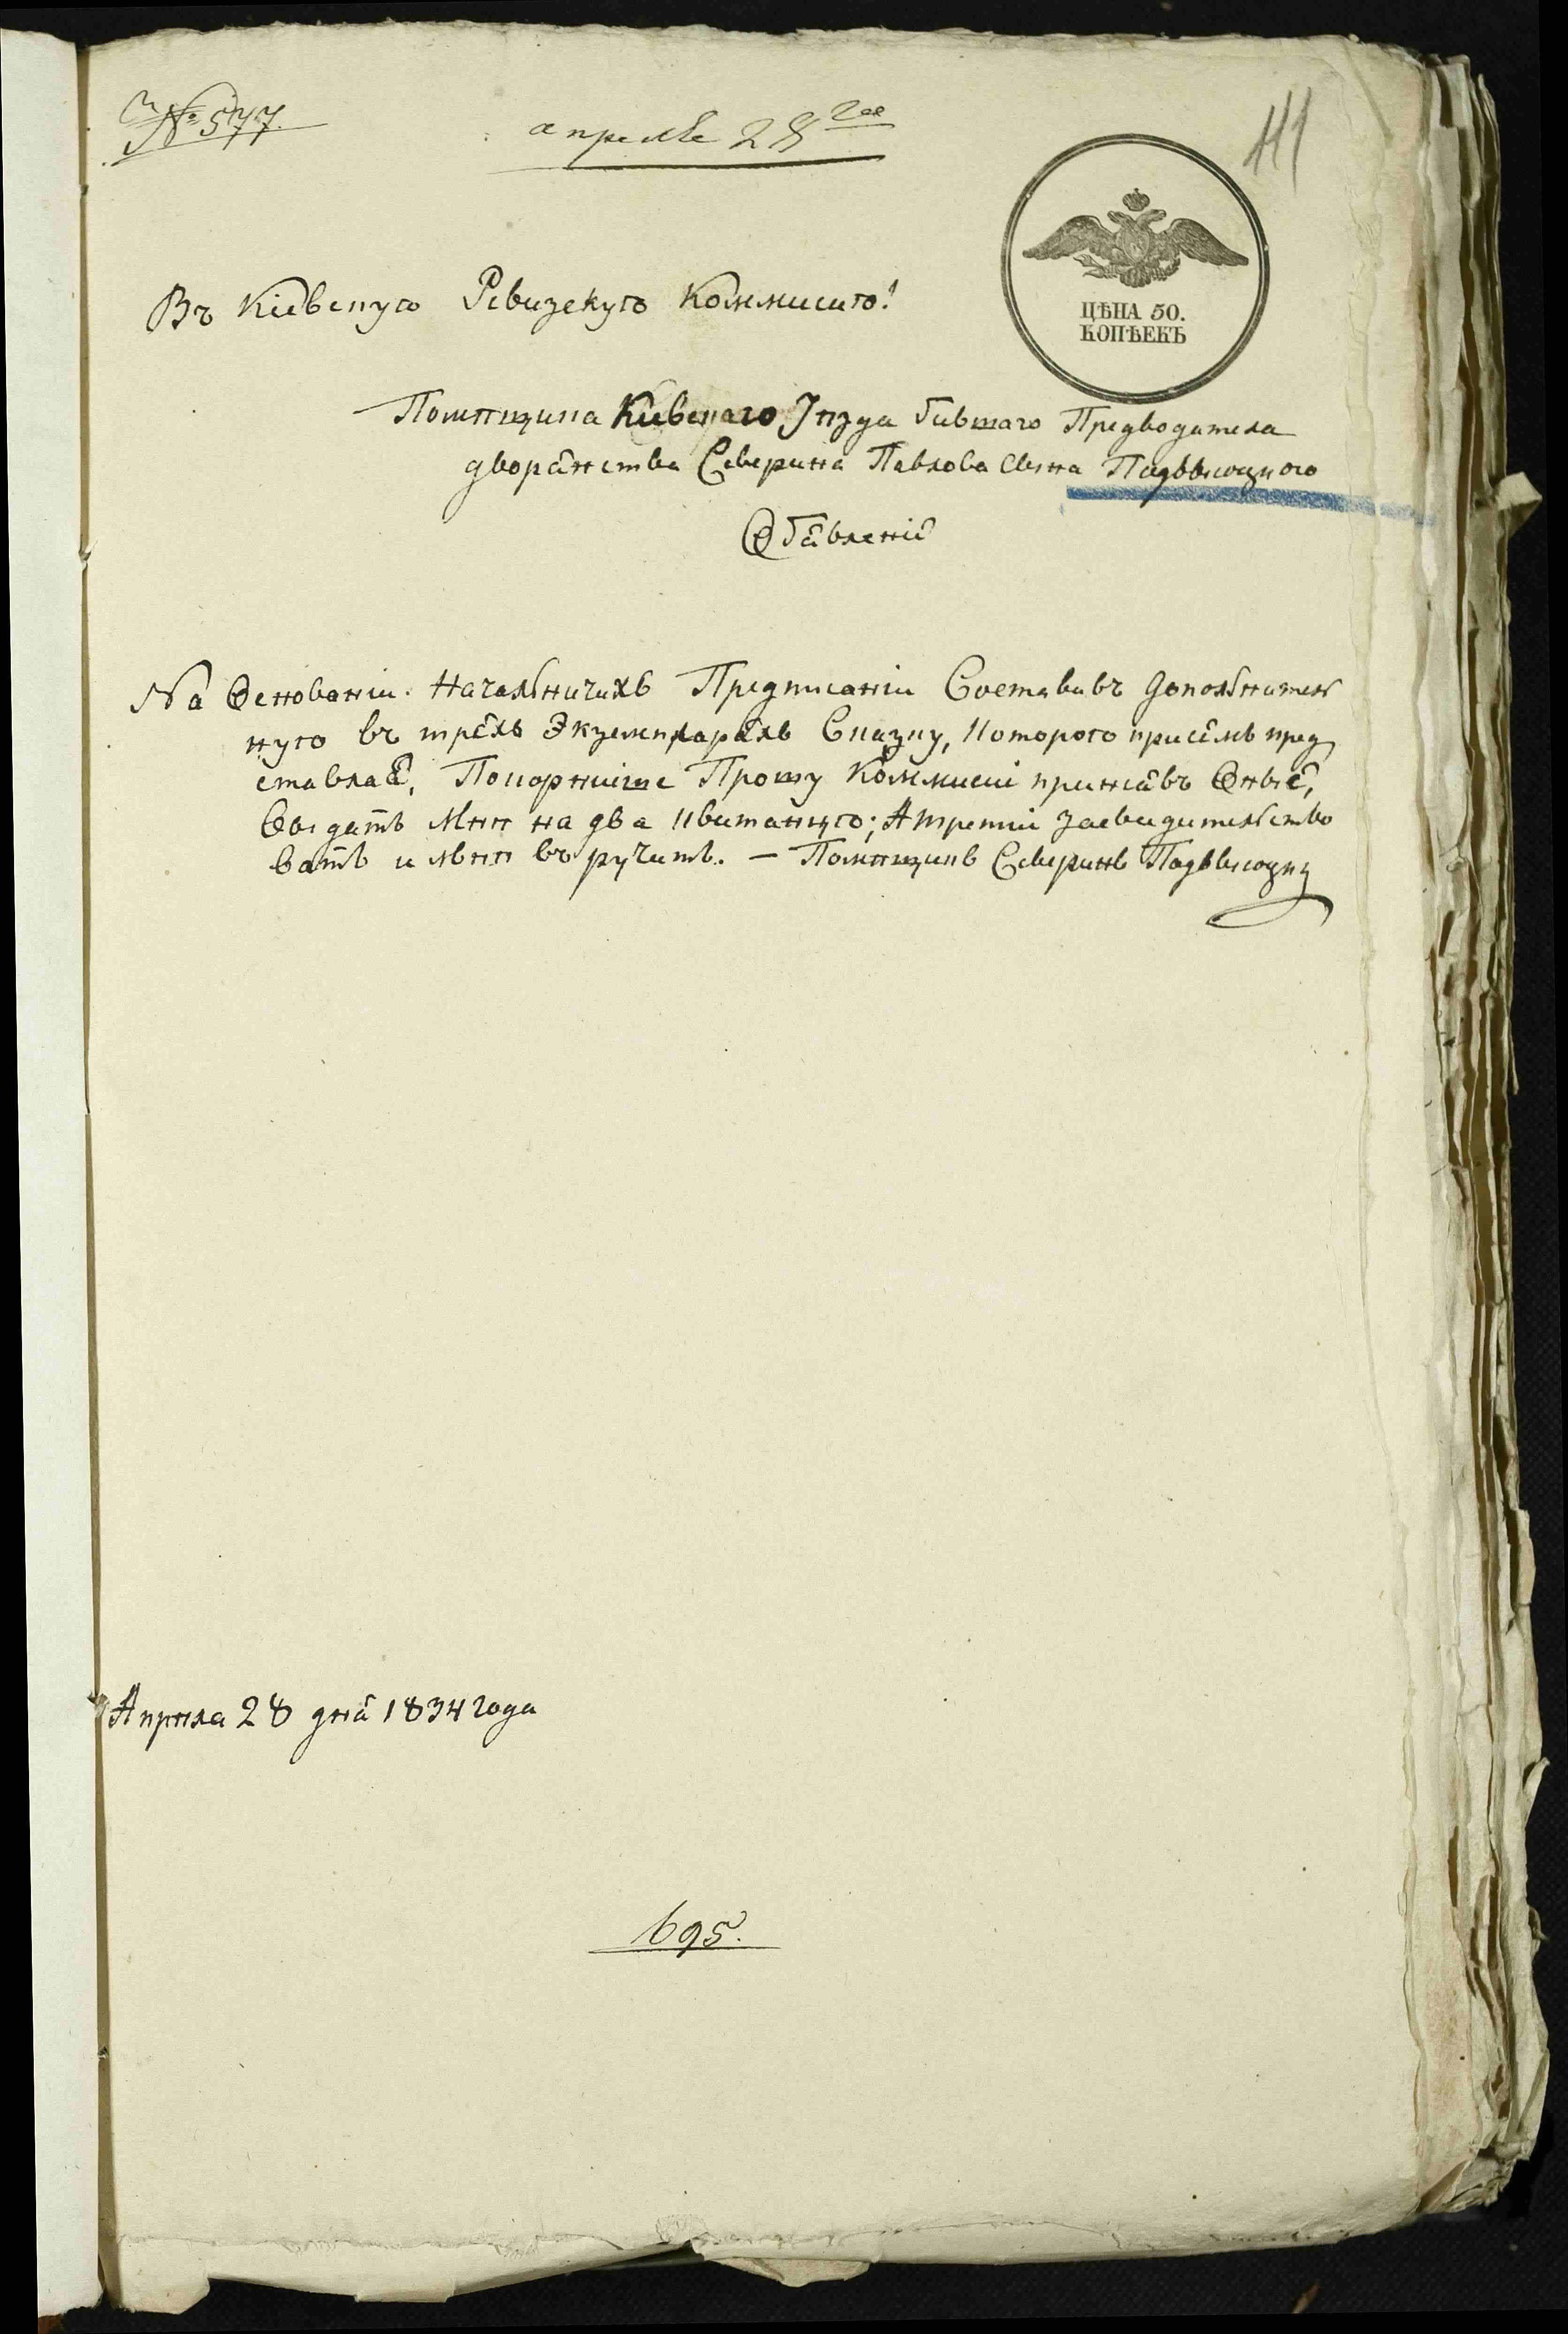 № 577.
апреля 28 го
111
ЦѢНА 50.
КОПѢЕКЪ
Въ Кіевскую Ревизскую Коммисію!
Помѣщика Кіевскаго Уѣзда бившаго Предводителя
дворянства Северина Павлова Сына Подвысоцкого
Обявленіе
На Основаніи Началничихъ Предписаніи Составивъ дополнител
ную въ трехъ Экземплярахъ Сказку, Которою присемъ пред
ставляя, Покорнѣише Прошу Коммисіи принявъ Оные,
Выдать Мнѣ на два Квитанцію; А третіи засвидителство
вать и мнѣ въручить. — Помѣщикъ Северинъ Подвысоцки
Апрѣля 28 дня 1834 года
695.